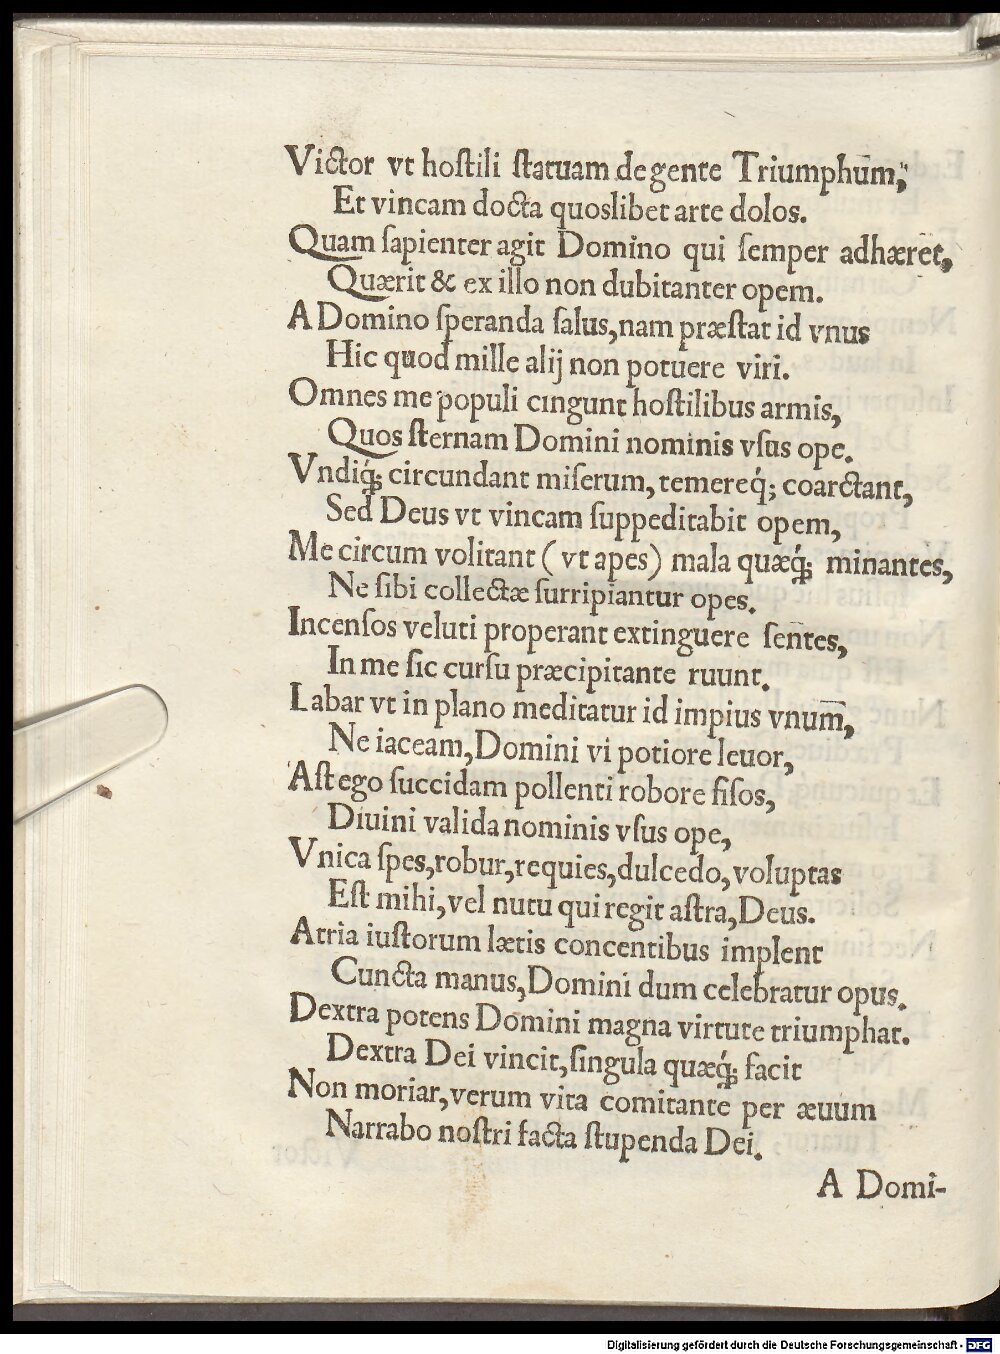 Victor vt hoſtili ſtatuam de gente Triumphum,
Et vincam docta quoslibet arte dolos.
Quam ſapienter agit Domino qui ſemper adhæret,
Quærit & ex illo non dubitanter opem.
A Domino ſperanda ſalus, nam præſtat id vnus
Hic quod mille alij non potuere viri.
Omnes me populi cingunt hoſtilibus armis,
Quos ſternam Domini nominis vſus ope.
Vndiq́; circundant miſerum, temereq́; coarctant,
Sed Deus vt vincam ſuppeditabit opem,
Me circum volitant ( vt apes) mala quæq́; minantes,
Ne ſibi collectæ ſurripiantur opes.
Incenſos veluti properant extinguere ſentes,
In me ſic curſu præcipitante ruunt.
Labar vt in plano meditatur id impius vnum,
Ne iaceam, Domini vi potiore leuor,
Aſt ego ſuccidam pollenti robore fiſos,
Diuini valida nominis vſus ope,
Vnica ſpes, robur, requies, dulcedo, voluptas
Eſt mihi, vel nutu qui regit aſtra, Deus.
Atria iuſtorum lætis concentibus implent
Cuncta manus, Domini dum celebratur opus.
Dextra potens Domini magna virtute triumphat.
Dextra Dei vincit, ſingula quæq́; facit
Non moriar, verum vita comitante per æuum
Narrabo noſtri facta ſtupenda Dei.
A Domi-
Digitalisierung gefördert durch die Deutsche Forschungsgemeinschaft - DFG